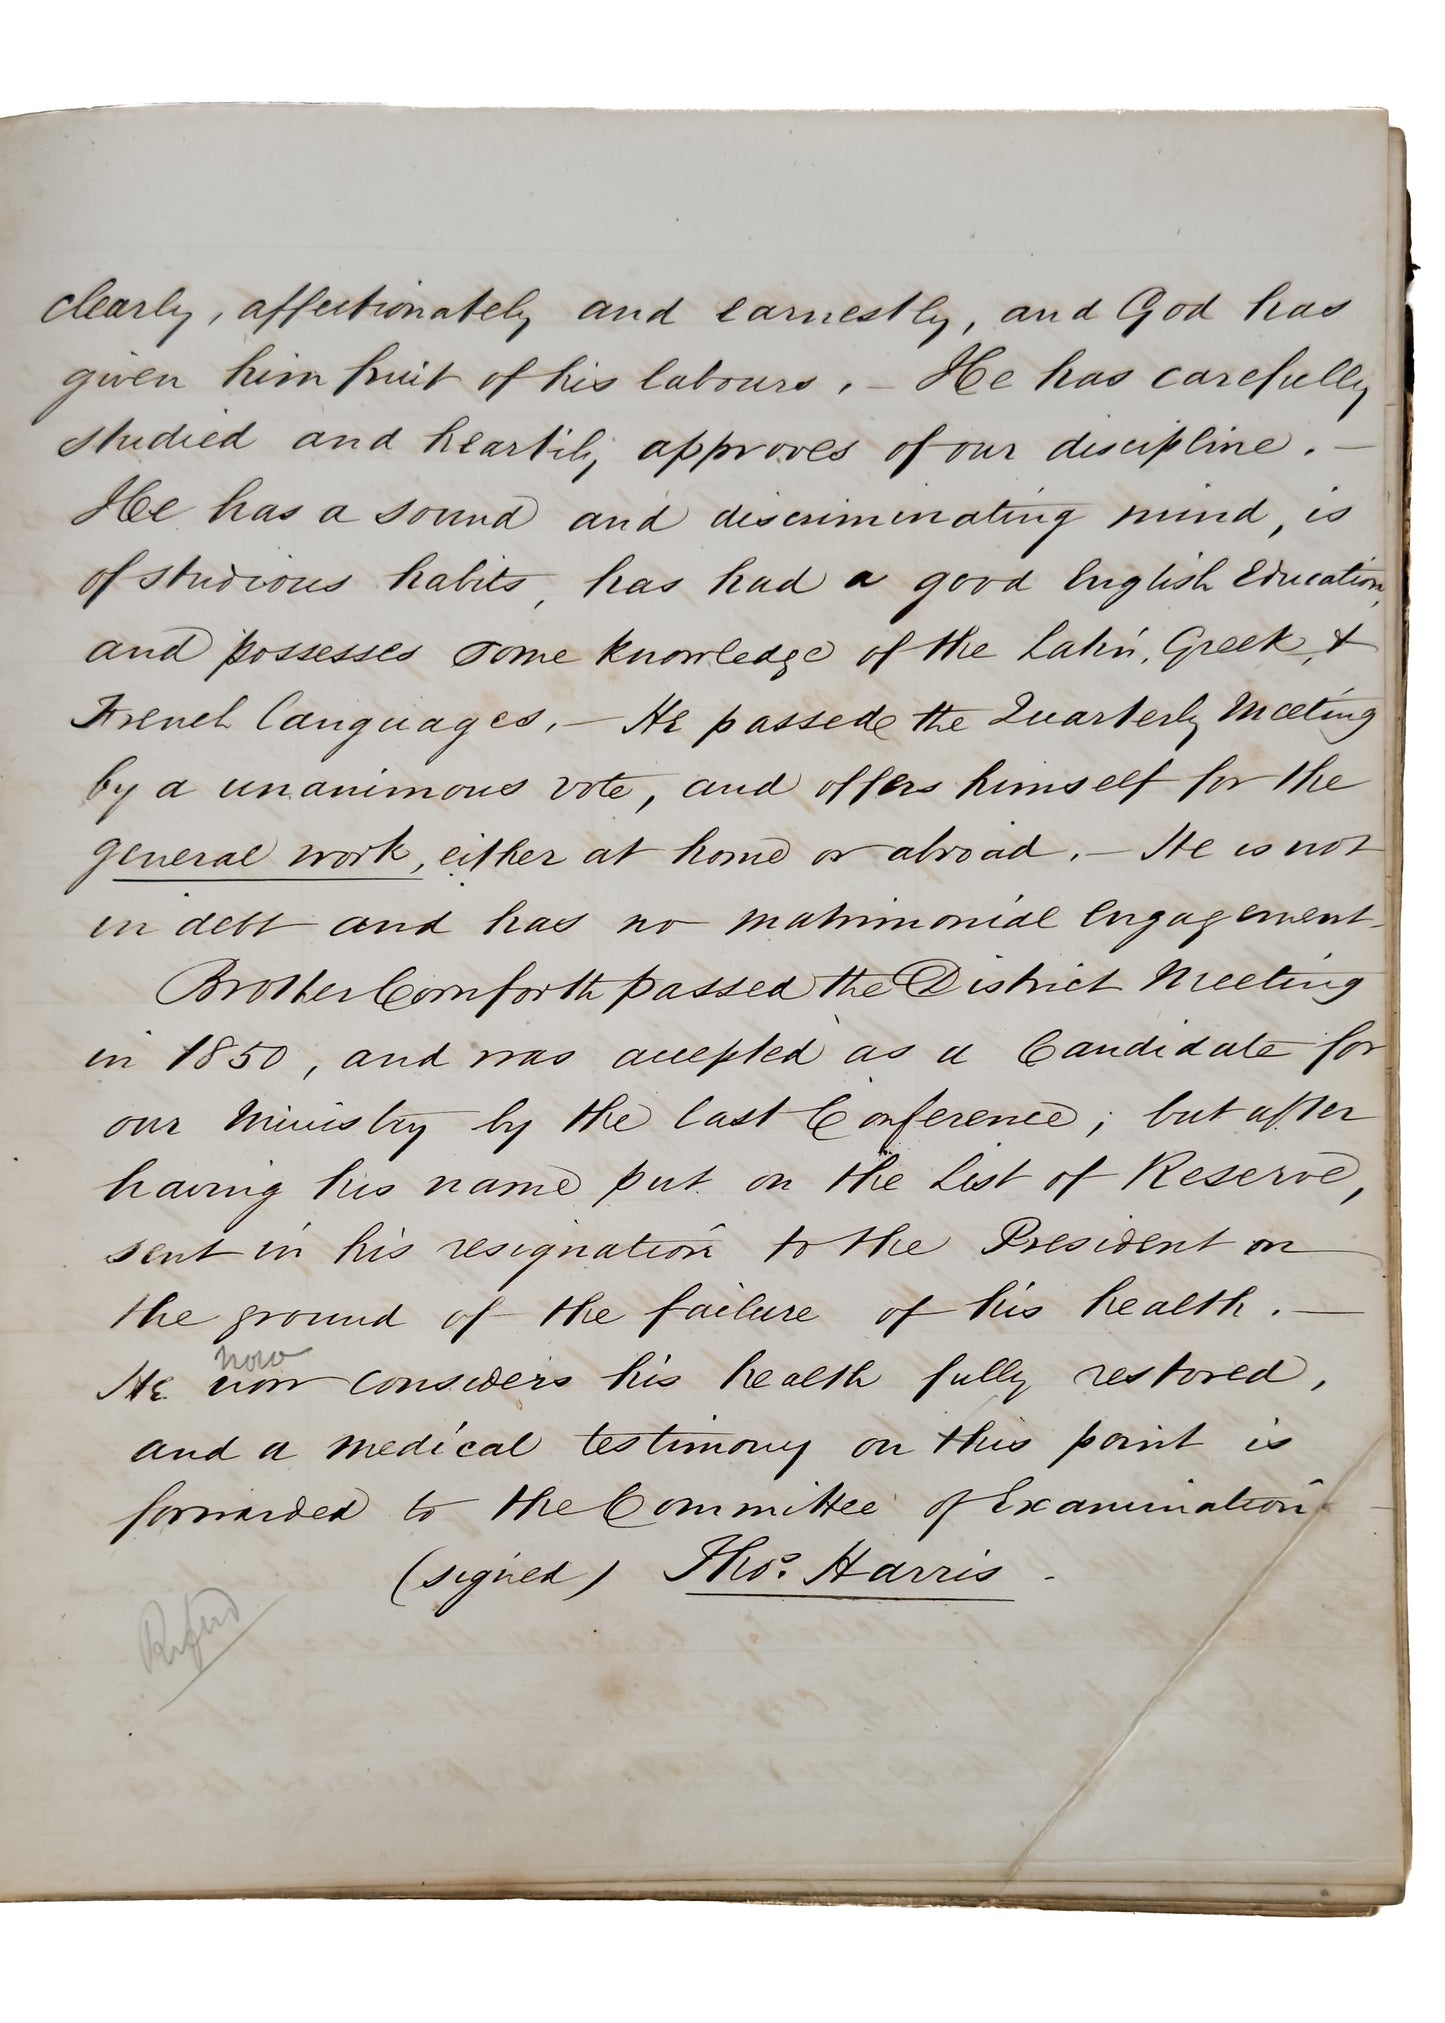 clearly, affectionately and earnestly, and God has
given him fruit of his labours. – He has carefully
studied and heartily approves of our discipline. –
He has a sound and discriminating mind, is
of studious habits, has had a good English Education,
and possesses some knowledge of the Latin, Greek, &
French languages. – He passed the Quarterly Meeting
by a unanimous vote, and offers himself for the
general work, either at home or abroad. – He is not
in debt and has no matrimonial engagement.
Brother Cornforth passed the District Meeting
in 1850, and was accepted as a Candidate for
our Ministry by the last Conference; but after
having his name put on the List of Reserve,
sent in his resignation to the President on
the ground of the failure of his health. –
now
He now considers his health fully restored,
and a medical testimony on this point is
forwarded to the Committee of Examination –
(signed) Thos. Harris.